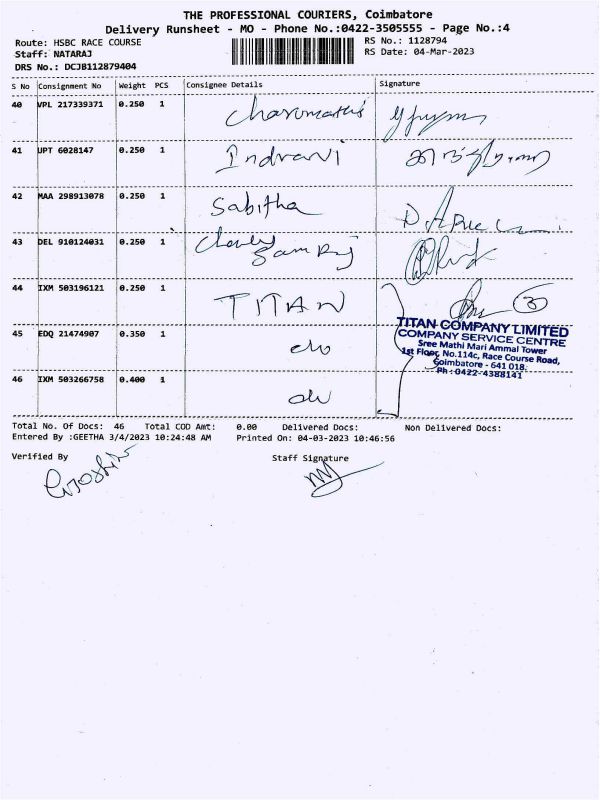 THE PROFESSIONAL COURIERS, Coimbatore
Delivery Runsheet - MO - Phone No.:0422-3505555 - Page No.:4
Route: HSBC RACE COURSE
RS No.: 1128794
Staff: NATARAJ
RS Date: 04-Mar-2023
DRS No.: DCJB112879404
S No Consignment No Weight PCS Consignee Details Signature
40 VPL 217339371 0.250 1 Charumathi
41 UPT 6028147 0.250 1 Indrani
42 MAA 298913078 0.250 1 Sabitha
43 DEL 910124031 0.250 1
44 IXM 503196121 0.250 1 TITAN 3
TITAN COMPANY LIMITED
COMPANY SERVICE CENTRE
Sree Mathi Mari Ammal Tower
1st Floor, No.114c, Race Course Road,
Coimbatore - 641 018.
Ph : 0422-4388141
45 EDQ 21474907 0.350 1 do
46 IXM 503266758 0.400 1 do
Total No. Of Docs: 46 Total COD Amt: 0.00 Delivered Docs: Non Delivered Docs:
Entered By :GEETHA 3/4/2023 10:24:48 AM Printed On: 04-03-2023 10:46:56
Verified By Staff Signature